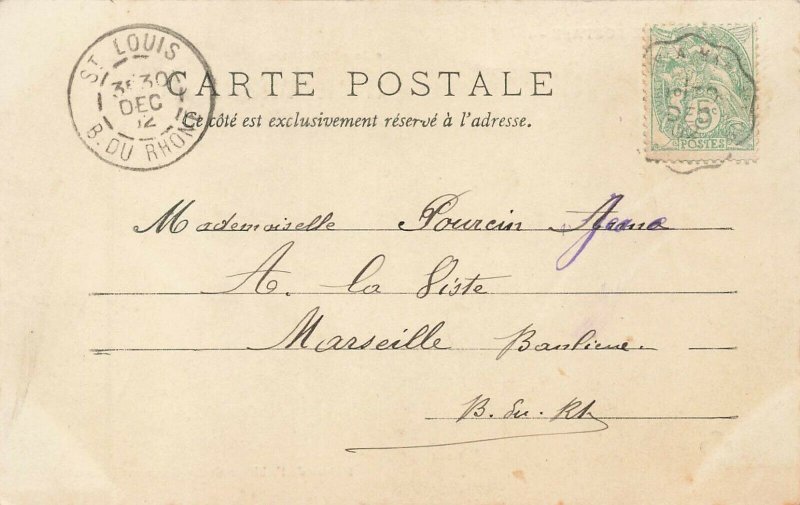 ST LOUIS
30
DEC
B. DU RHONE
CARTE POSTALE
Ce côté est exclusivement réservé à l'adresse.
5
POSTES
Mademoiselle Pourcin
A. la Viste
Marseille Banlieue.
B. du. Rh